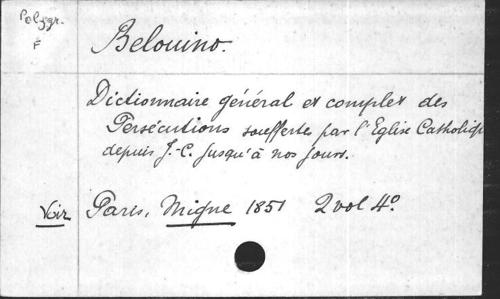 Polygr.
F
Belouino.
Dictionnaire général et complet des
Persécutions soufferte par l'Eglise Catholiq
depuis J.-C. jusqu'à nos jours.
Voir Paris, Migne 1851 2 vol 4°